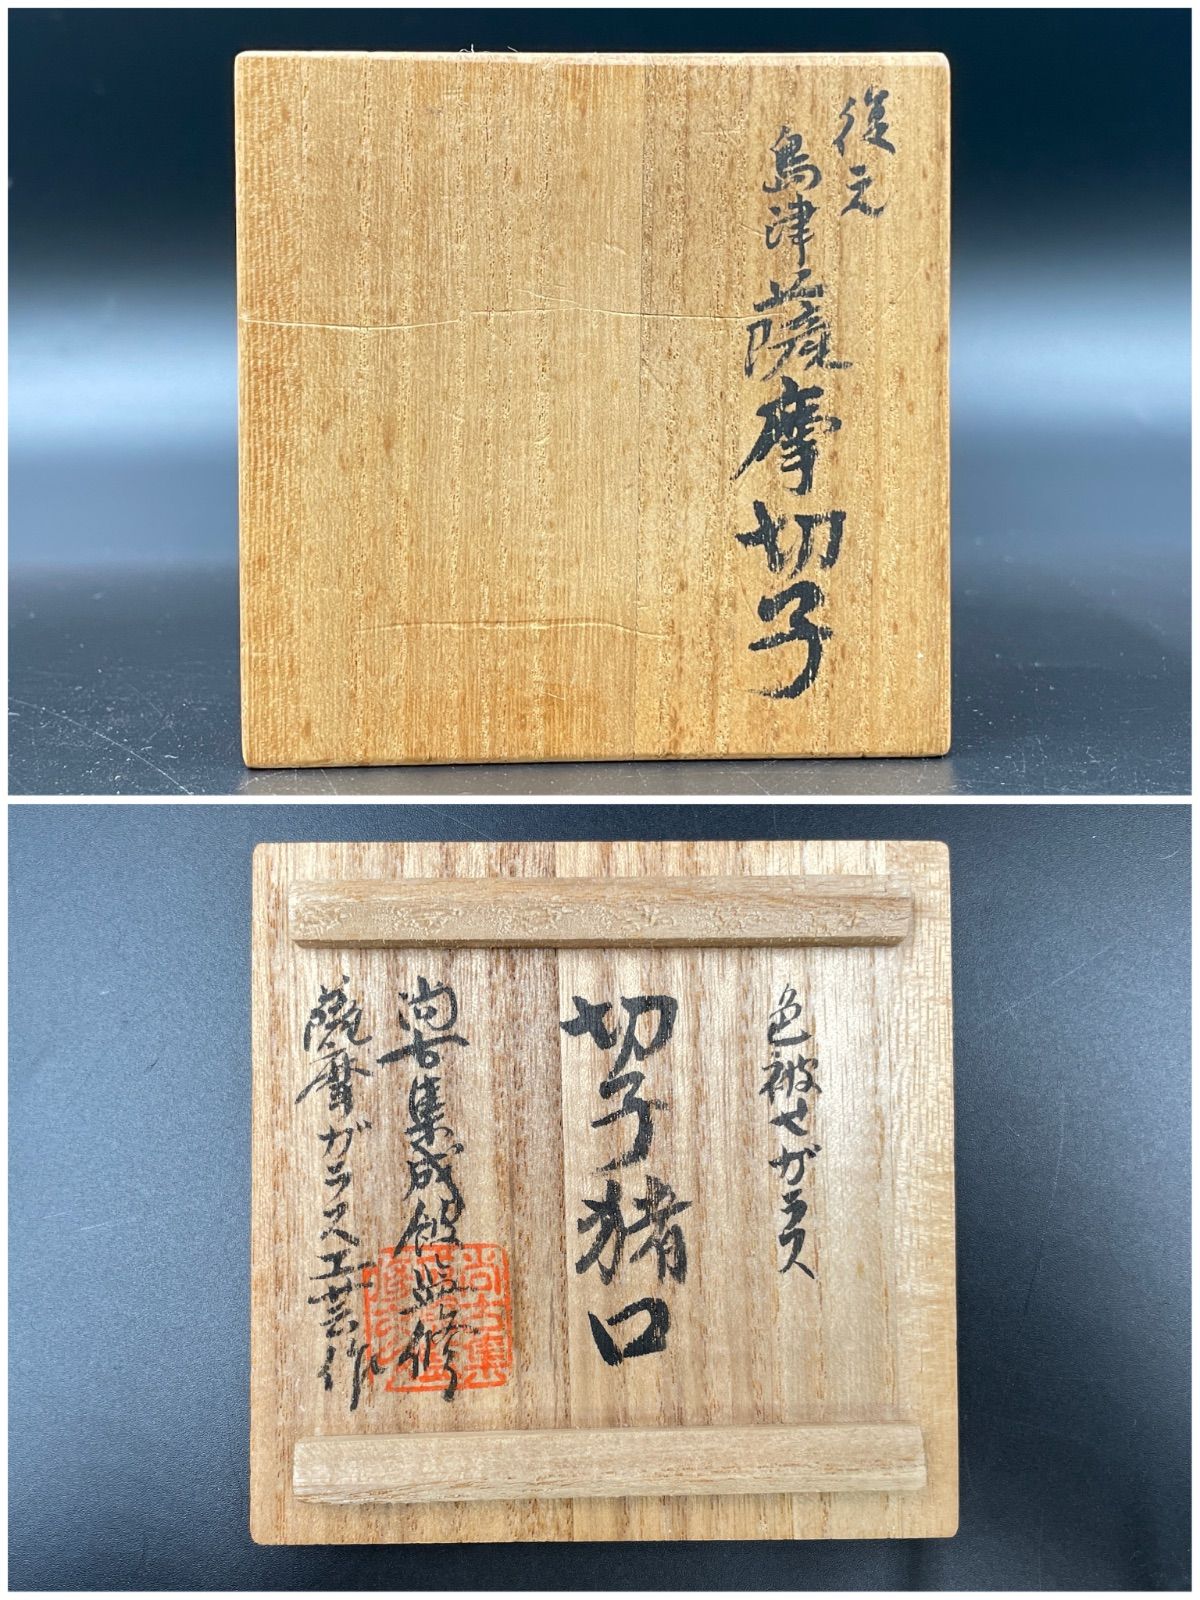 復元
島津薩摩切子
色被せガラス
切子猪口
尚古集成館監修
薩摩ガラス工芸作
尚古集